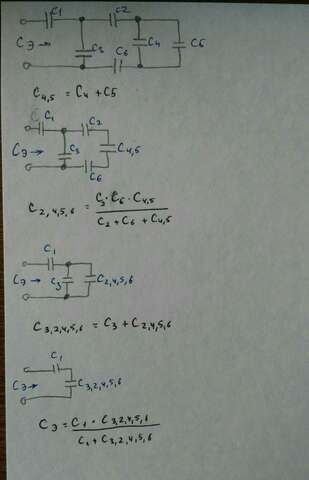 C1 C2
Cэ → C3 C4 C5
C6
C4,5 = C4 + C5
C1 C2
Cэ → C3 C4,5
C6
C2,4,5,6 = C2 · C6 · C4,5
C2 + C6 + C4,5
C1
Cэ → C3 C2,4,5,6
C3,2,4,5,6 = C3 + C2,4,5,6
C1
Cэ → C3,2,4,5,6
Cэ = C1 · C3,2,4,5,6
C1 + C3,2,4,5,6